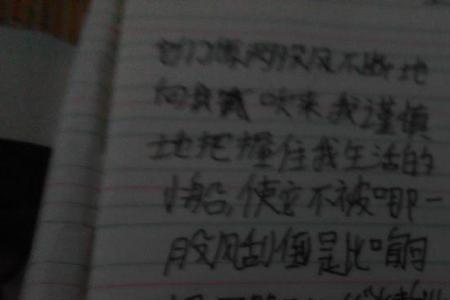 它们像两股风不断地
向我 吹来 我谨慎
地把握住我生活的
小船,使它不被哪一
股风刮倒是比